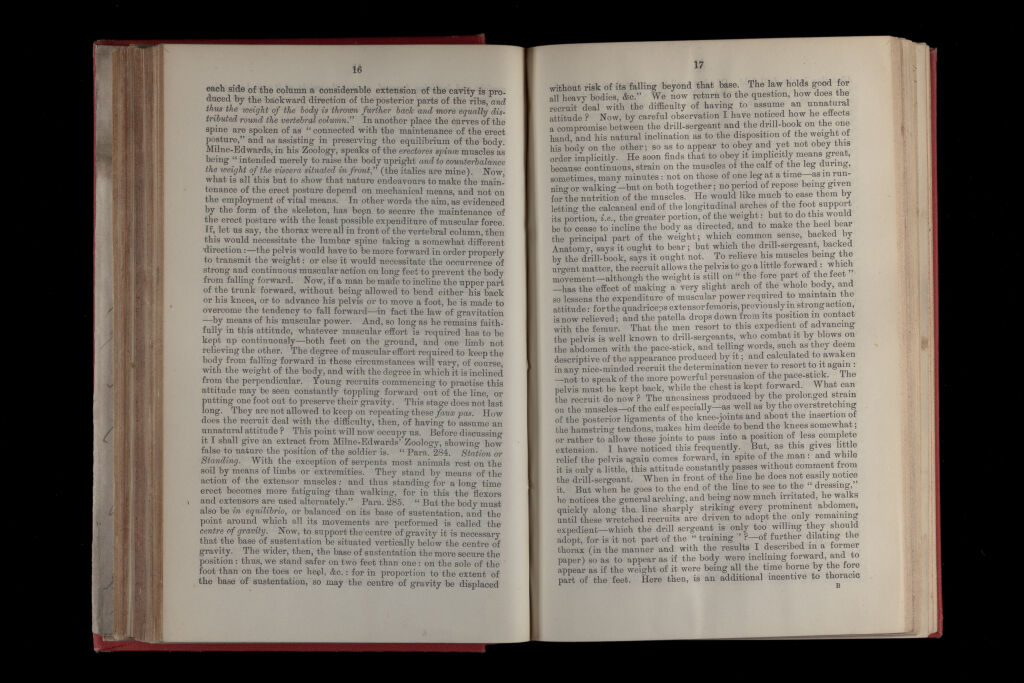 16
each side of the column a considerable extension of the cavity is pro-
duced by the backward direction of the posterior parts of the ribs, and
thus the weight of the body is thrown further back and more equally dis-
tributed round the vertebral column." In another place the curves of the
spine are spoken of as "connected with the maintenance of the erect
posture," and as assisting in preserving the equilibrium of the body.
Milne-Edwards, in his Zoology, speaks of the erectores spinæ muscles as
being "intended merely to raise the body upright and to counterbalance
the weight of the viscera situated in front," (the italics are mine). Now,
what is all this but to show that nature endeavours to make the main-
tenance of the erect posture depend on mechanical means, and not on
the employment of vital means. In other words the aim, as evidenced
by the form of the skeleton, has been to secure the maintenance of
the erect posture with the least possible expenditure of muscular force.
If, let us say, the thorax were all in front of the vertebral column, then
this would necessitate the lumbar spine taking a somewhat different
direction:—the pelvis would have to be more forward in order properly
to transmit the weight: or else it would necessitate the occurrence of
strong and continuous muscular action on long feet to prevent the body
from falling forward. Now, if a man be made to incline the upper part
of the trunk forward, without being allowed to bend either his back
or his knees, or to advance his pelvis or to move a foot, he is made to
overcome the tendency to fall forward—in fact the law of gravitation
—by means of his muscular power. And, so long as he remains faith-
fully in this attitude, whatever muscular effort is required has to be
kept up continuously—both feet on the ground, and one limb not
relieving the other. The degree of muscular effort required to keep the
body from falling forward in these circumstances will vary, of course,
with the weight of the body, and with the degree in which it is inclined
from the perpendicular. Young recruits commencing to practise this
attitude may be seen constantly toppling forward out of the line, or
putting one foot out to preserve their gravity. This stage does not last
long. They are not allowed to keep on repeating these faux pas. How
does the recruit deal with the difficulty, then, of having to assume an
unnatural attitude? This point will now occupy us. Before discussing
it I shall give an extract from Milne-Edwards' Zoology, showing how
false to nature the position of the soldier is. "Para. 284. Station or
Standing. With the exception of serpents most animals rest on the
soil by means of limbs or extremities. They stand by means of the
action of the extensor muscles: and thus standing for a long time
erect becomes more fatiguing than walking, for in this the flexors
and extensors are used alternately." Para. 285. "But the body must
also be in equilibrio, or balanced on its base of sustentation, and the
point around which all its movements are performed is called the
centre of gravity. Now, to support the centre of gravity it is necessary
that the base of sustentation be situated vertically below the centre of
gravity. The wider, then, the base of sustentation the more secure the
position: thus, we stand safer on two feet than one: on the sole of the
foot than on the toes or heel, &c.: for in proportion to the extent of
the base of sustentation, so may the centre of gravity be displaced
17
without risk of its falling beyond that base. The law holds good for
all heavy bodies, &c." We now return to the question, how does the
recruit deal with the difficulty of having to assume an unnatural
attitude? Now, by careful observation I have noticed how he effects
a compromise between the drill-sergeant and the drill-book on the one
hand, and his natural inclination as to the disposition of the weight of
his body on the other; so as to appear to obey and yet not obey this
order implicitly. He soon finds that to obey it implicitly means great,
because continuous, strain on the muscles of the calf of the leg during,
sometimes, many minutes: not on those of one leg at a time—as in run-
ning or walking—but on both together; no period of repose being given
for the nutrition of the muscles. He would like much to ease them by
letting the calcaneal end of the longitudinal arches of the foot support
its portion, i.e., the greater portion, of the weight: but to do this would
be to cease to incline the body as directed, and to make the heel bear
the principal part of the weight; which common sense, backed by
Anatomy, says it ought to bear; but which the drill-sergeant, backed
by the drill-book, says it ought not. To relieve his muscles being the
urgent matter, the recruit allows the pelvis to go a little forward: which
movement—although the weight is still on "the fore part of the feet"
—has the effect of making a very slight arch of the whole body, and
so lessens the expenditure of muscular power required to maintain the
attitude: for the quadriceps extensor femoris, previously in strong action,
is now relieved; and the patella drops down from its position in contact
with the femur. That the men resort to this expedient of advancing
the pelvis is well known to drill-sergeants, who combat it by blows on
the abdomen with the pace-stick, and telling words, such as they deem
descriptive of the appearance produced by it; and calculated to awaken
in any nice-minded recruit the determination never to resort to it again:
—not to speak of the more powerful persuasion of the pace-stick. The
pelvis must be kept back, while the chest is kept forward. What can
the recruit do now? The uneasiness produced by the prolonged strain
on the muscles—of the calf especially—as well as by the overstretching
of the posterior ligaments of the knee-joints and about the insertion of
the hamstring tendons, makes him decide to bend the knees somewhat;
or rather to allow these joints to pass into a position of less complete
extension. I have noticed this frequently. But, as this gives little
relief the pelvis again comes forward, in spite of the man: and while
it is only a little, this attitude constantly passes without comment from
the drill-sergeant. When in front of the line he does not easily notice
it. But when he goes to the end of the line to see to the "dressing,"
he notices the general arching, and being now much irritated, he walks
quickly along the line sharply striking every prominent abdomen,
until these wretched recruits are driven to adopt the only remaining
expedient—which the drill sergeant is only too willing they should
adopt, for is it not part of the "training"?—of further dilating the
thorax (in the manner and with the results I described in a former
paper) so as to appear as if the body were inclining forward, and to
appear as if the weight of it were being all the time borne by the fore
part of the feet. Here then, is an additional incentive to thoracic
B